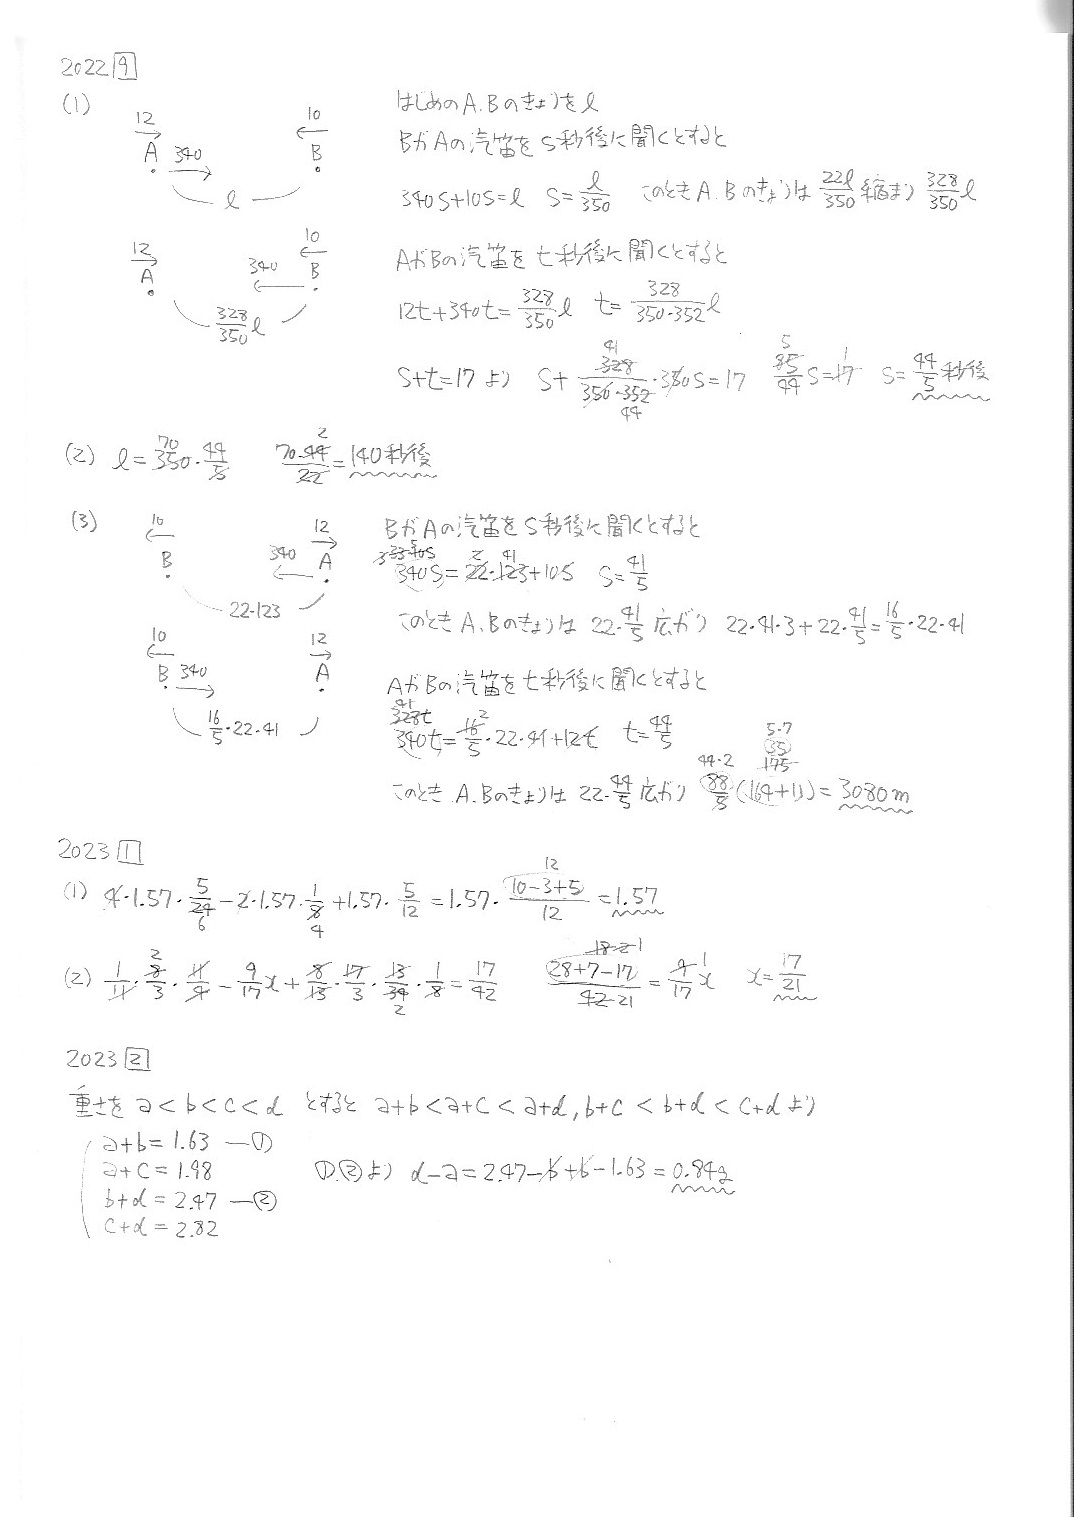 2022 9
(1)
12 10 はじめのA.Bのきょりをl
A 340 B BがAの汽笛をS秒後に聞くとすると
l 340S+10S=l S=l/350 このときA.Bのきょりは 22l/350 縮まり 328/350 l
12 10 AがBの汽笛をt秒後に聞くとすると
A 340 B
328/350 l 12t+340t=328/350 l t=328/350・352 l
S+t=17より S+328/350・352・350S=17 85/44 S=17 S=44/5秒後
41 44 5 1
(2) l=350・44/5 70・44/22=140秒後
70 2
(3) 10 12 BがAの汽笛をS秒後に聞くとすると
B 340 A 340S=22・123+10S S=41/5
22・123 このときA.Bのきょりは 22・41/5 広がり 22・41・3+22・41/5=16/5・22・41
10 12 AがBの汽笛をt秒後に聞くとすると
B 340 A 328t 41
16/5・22・41 340t=16/5・22・41+12t t=44/5
このときA.Bのきょりは 22・44/5 広がり 88/5(164+11)=3080m
44・2 175 35 5・7
2023 1
(1) 4・1.57・5/24-2・1.57・1/8+1.57・5/12=1.57・10-3+5/12=1.57
6 4 12
(2) 1/11・8/3・11/4-9/17x+8/13・17/3・13/34・1/8=17/42 28+7-17/42・21=9/17x x=17/21
2 2 18 2 1 1
2023 2
重さを a<b<c<d とすると a+b<a+c<a+d,b+c<b+d<c+dより
a+b=1.63 ―①
a+c=1.98 ①.②より d-a=2.47-b+b-1.63=0.84g
b+d=2.47 ―②
c+d=2.82